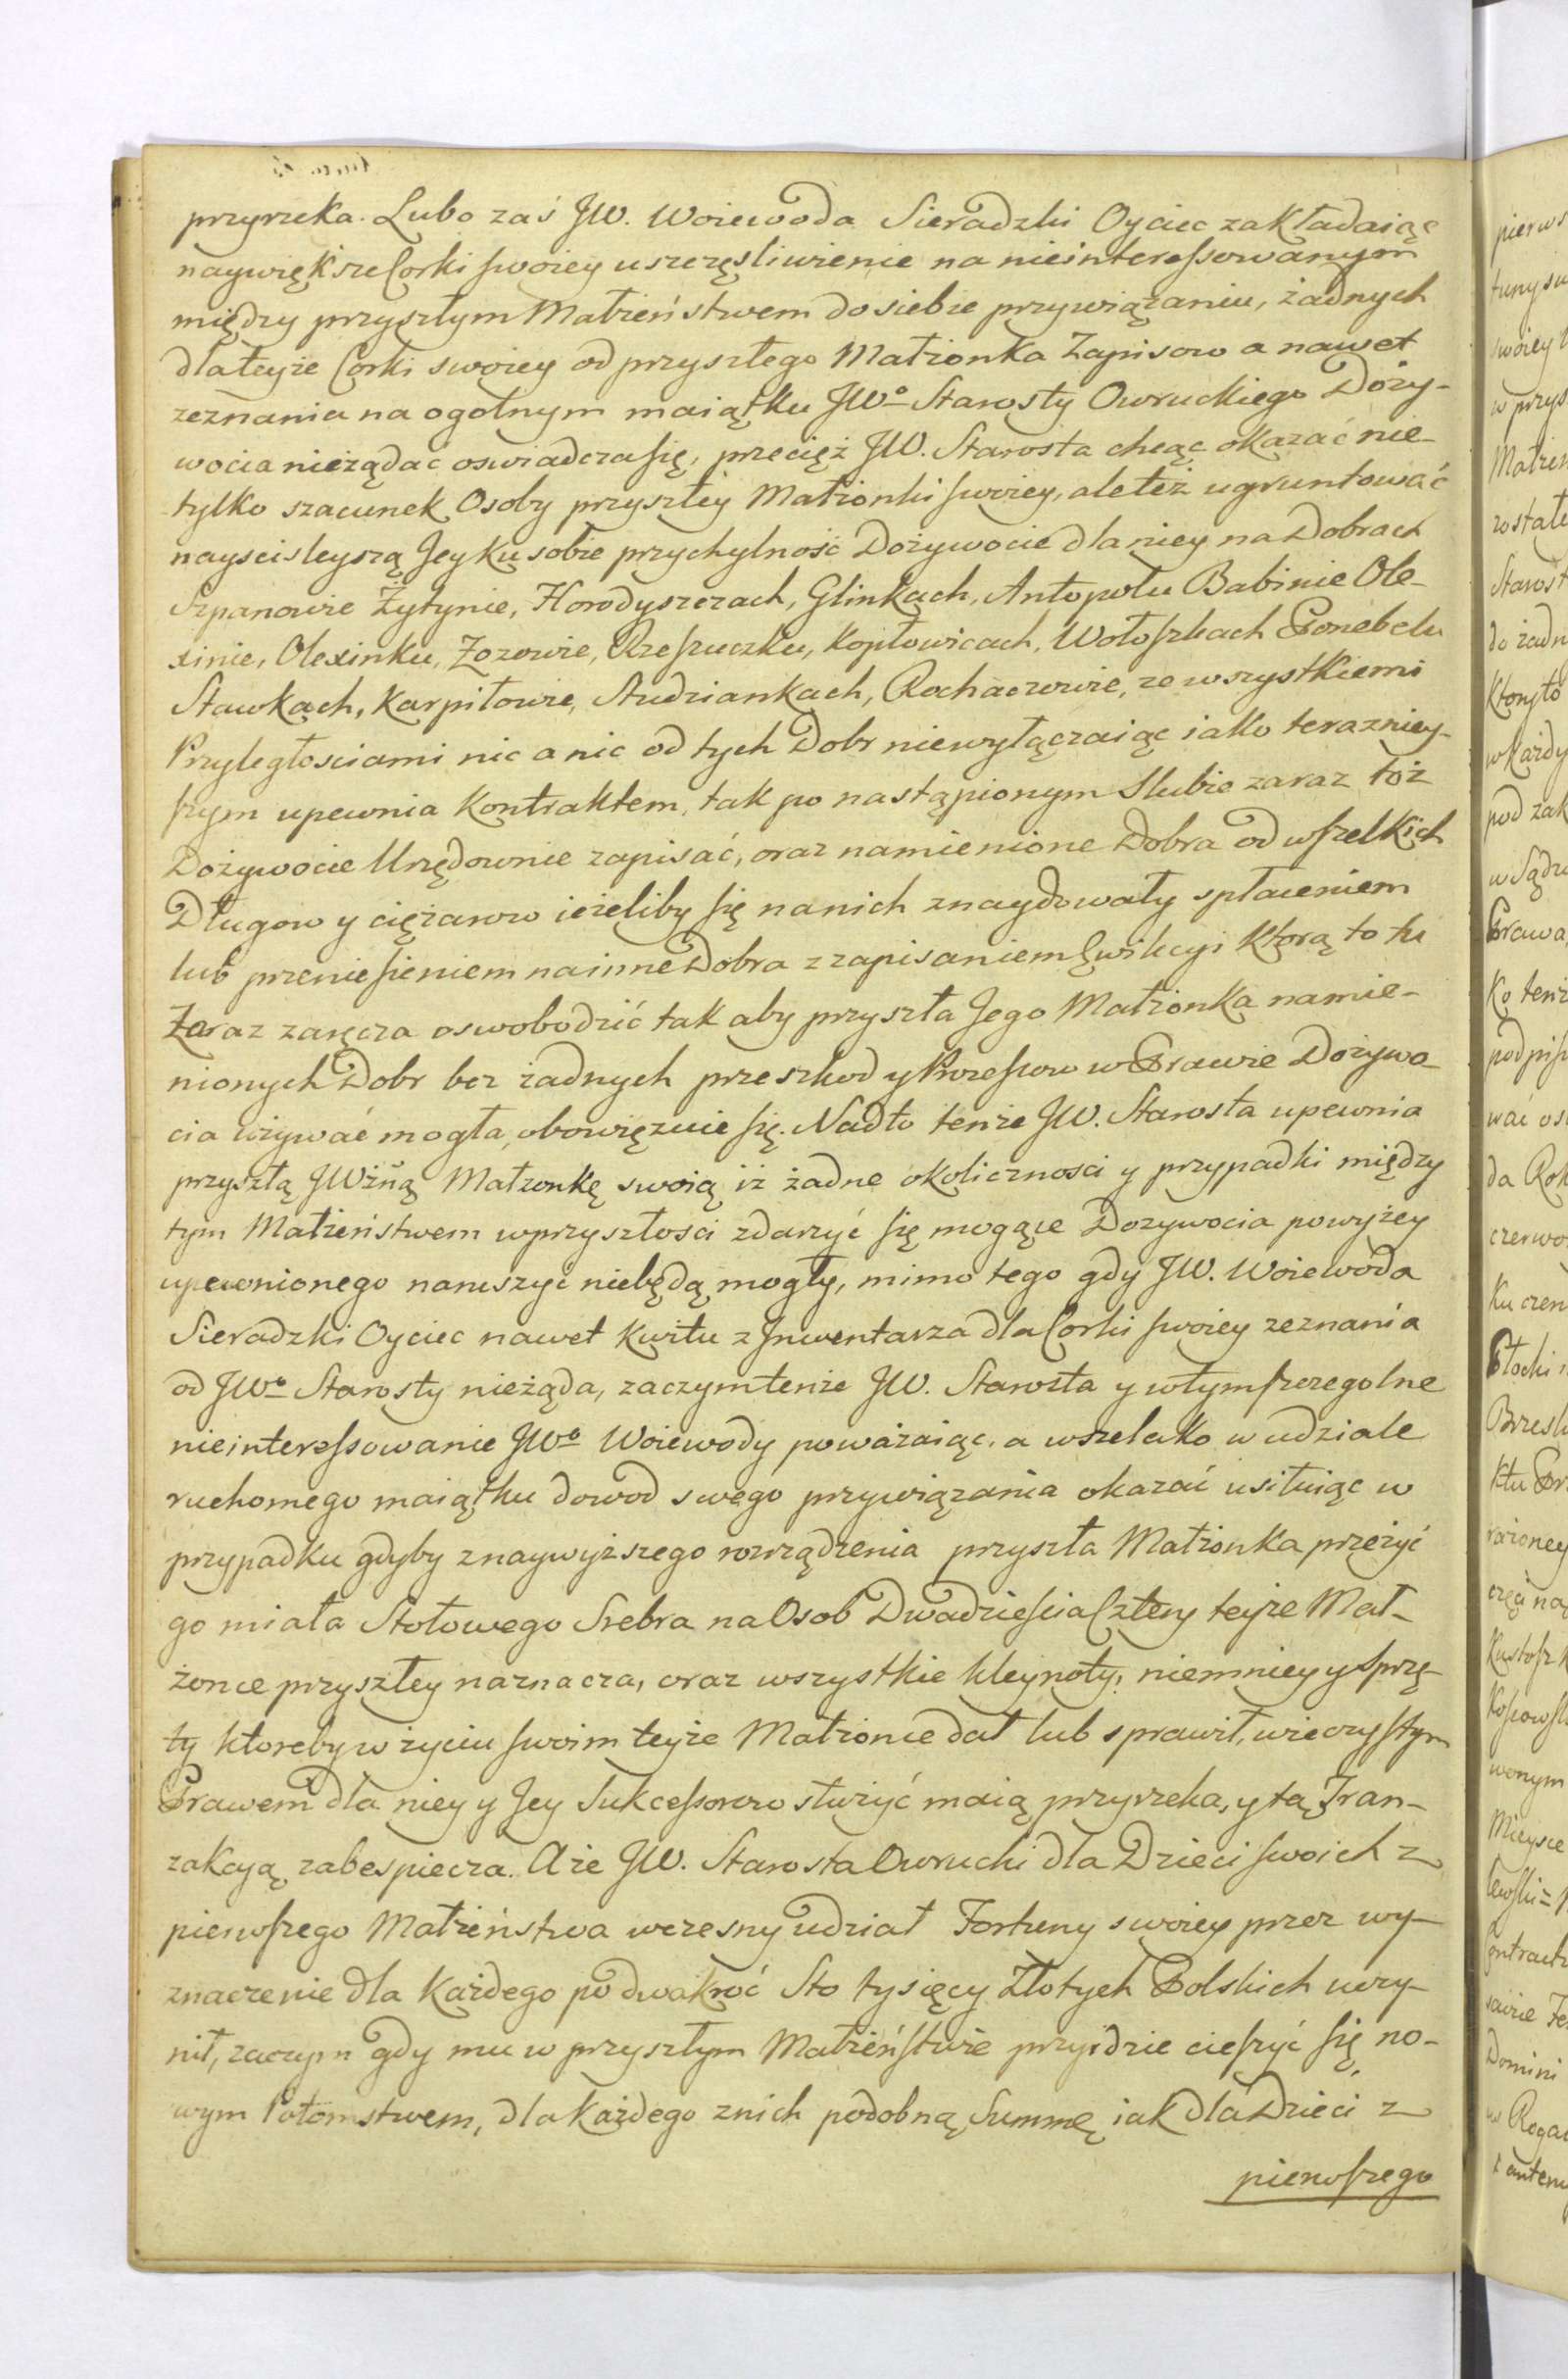 przyrzeka. Lubo zaś JW. Woiewoda Sieradzki Oyciec zakładaiąc
naywiększe Corki swoiey uszczęsliwienie na nieinteressowanym
między przyszłym Małżeństwem do siebie przywiązaniu, żadnych
dla teyże Corki swoiey od przyszłego Małżonka Zapisow a nawet
zeznania na ogolnym maiątku JWo Starosty Owruckiego Doży-
wocia nieżądac oswiadcza się, przecięż JW. Starosta chcąc okazać nie-
tylko szacunek Osoby przyszłey Małżonki swoiey, ale też ugruntować
nayscisleyszą Jey ku sobie przychylność Dożywocie dla niey na Dobrach
Szpanowie Żytynie, Horodyszczach, Glinkach, Antopolu Babinie Ole-
xinie, Olexinku, Zozowie, Rzeszuczku, Kopłowicach, Wołoszkach Ponebelu
Stawkach, Karpiłowie, Studziankach, Rochaczowie, ze wszystkiemi
Przyległosciami nic a nic od tych Dobr niewyłączaiąc iako terazniey-
szym upewnia Kontraktem, tak po nastąpionym Slubie zaraz toż
Dożywocie Urzędownie zapisać, oraz namienione Dobra od wszelkich
Długow y ciężarow ieżeliby się na nich znaydowały spłaceniem
lub przeniesieniem na inne Dobra z zapisaniem Ewikcyi ktorą to tu
Zaraz zaręcza oswobodzić tak aby przyszła Jego Małżonka namie-
nionych Dobr bez żadnych przeszkod y Processow w Prawie Dożywo-
cia używać mogła, obowięzuie się. Nadto tenże JW. Starosta upewnia
przyszłą JWżną Małzonkę swoią iż żadne okolicznosci y przypadki między
tym Małżeństwem w przyszłosci zdarzyć się mogące Dozywocia powyżey
upewnionego naruszyć niebędą mogły, mimo tego gdy JW. Woiewoda
Sieradzki Oyciec nawet kwitu z Jnwentarza dla Corki swoiey zeznania
od JWo Starosty nieżąda, zaczym tenże JW. Starosta y w tym szczegolne
nieinteressowanie JWo Woiewody poważaiąc, a wszelako w udziale
ruchomego maiątku dowod swego przywiązania okazać usiłuiąc w
przypadku gdyby z naywyższego rozrządzenia przyszła Małżonka przeżyć
go miała Stołowego Srebra na Osob Dwadziescia Cztery teyże Mał-
żonce przyszłey naznacza, oraz wszystkie kleynoty, niemniey y sprzę-
ty ktoreby w życiu swoim teyże Małżonce dał lub sprawił, wieczystym
Prawem dla niey y Jey Sukcessorow służyć maią przyrzeka, y tą Tran-
zakcyą zabespiecza. A że JW. Starosta Owrucki dla Dzieci swoich z
pierwszego Małżeństwa wczesny udział Fortuny swoiey przez wy-
znaczenie dla każdego po dwakroć Sto tysięcy Złotych Polskich uczy-
nił, zaczym gdy mu w przyszłym Małżeństwie przyidzie cieszyć się no-
wym Potomstwem, dla każdego z nich podobną Summę iak dla Dzieci z
pierwszego